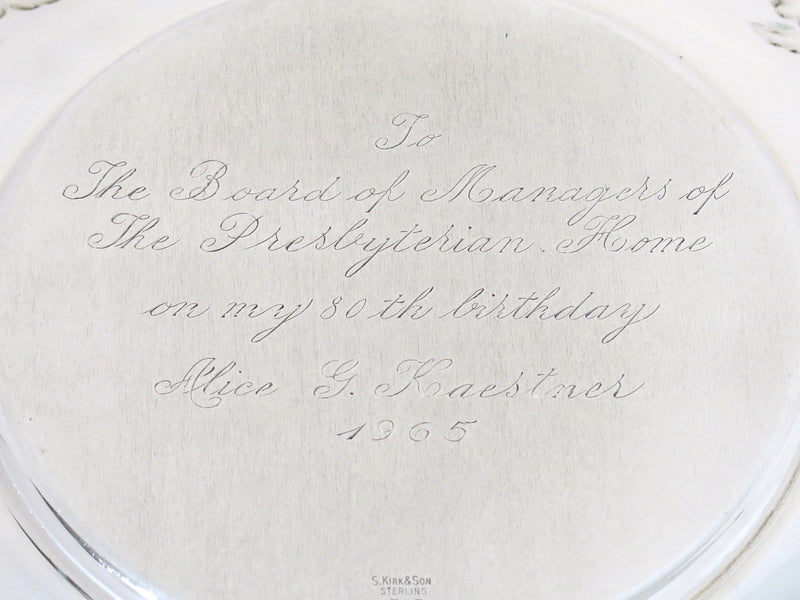 To
The Board of Managers of
The Presbyterian Home
on my 80th birthday
Alice G. Kaestner
1965
S. KIRK & SON
STERLING